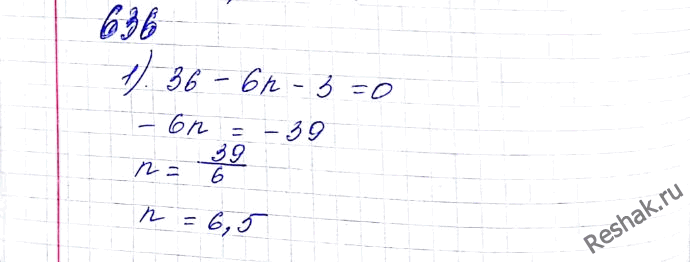 636
1). 36 - 6n - 3 = 0
- 6n = - 39
n = 39/6
n = 6,5
Reshak.ru